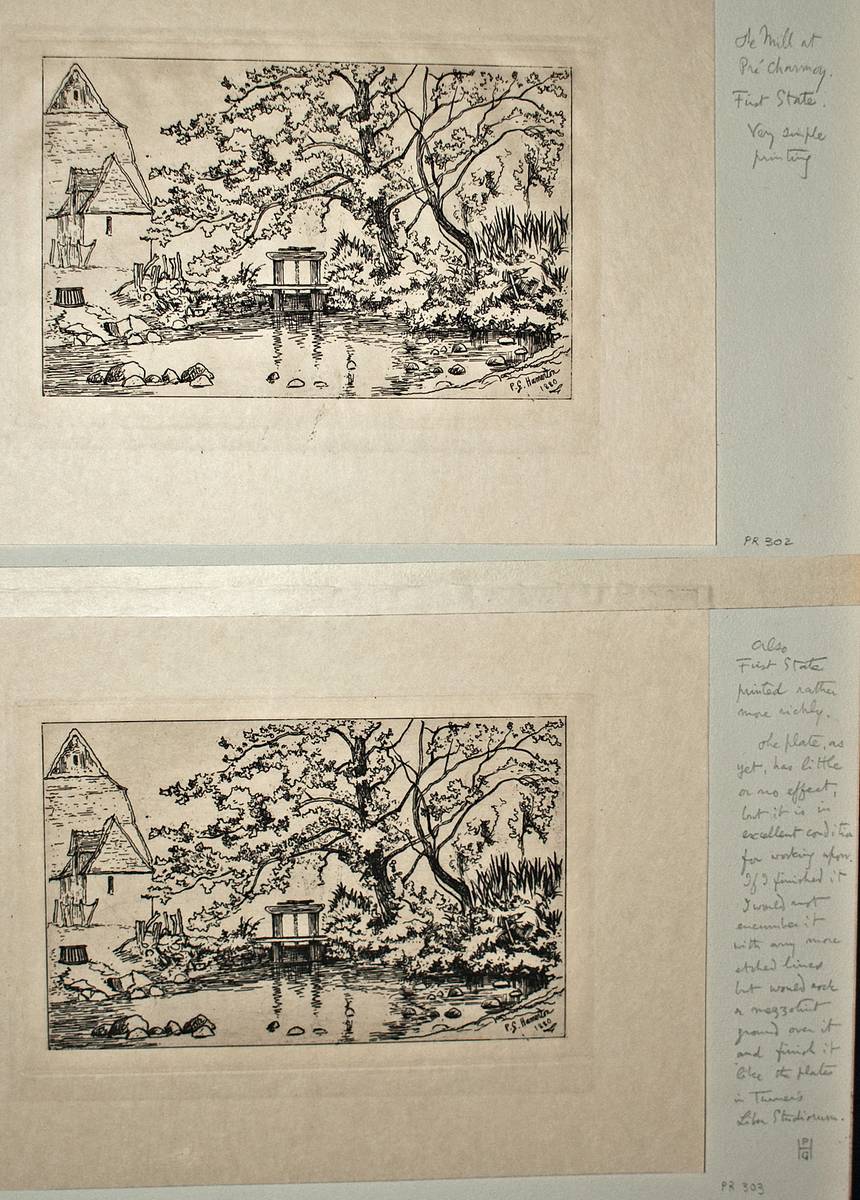 The Mill at
Pré Charmoy.
First State.
Very simple
printing
P. G. Hamerton
1880
PR 302
also
First State
printed rather
more richly.
The plate, as
yet, has little
or no effect,
but it is in
excellent condition
for working upon.
If I finished it
I would not
encumber it
with any more
etched lines
but would rock
a mezzotint
ground over it
and finish it
like the plates
in Turner's
Liber Studiorum.
P
H
G
P. G. Hamerton
1880
PR 303